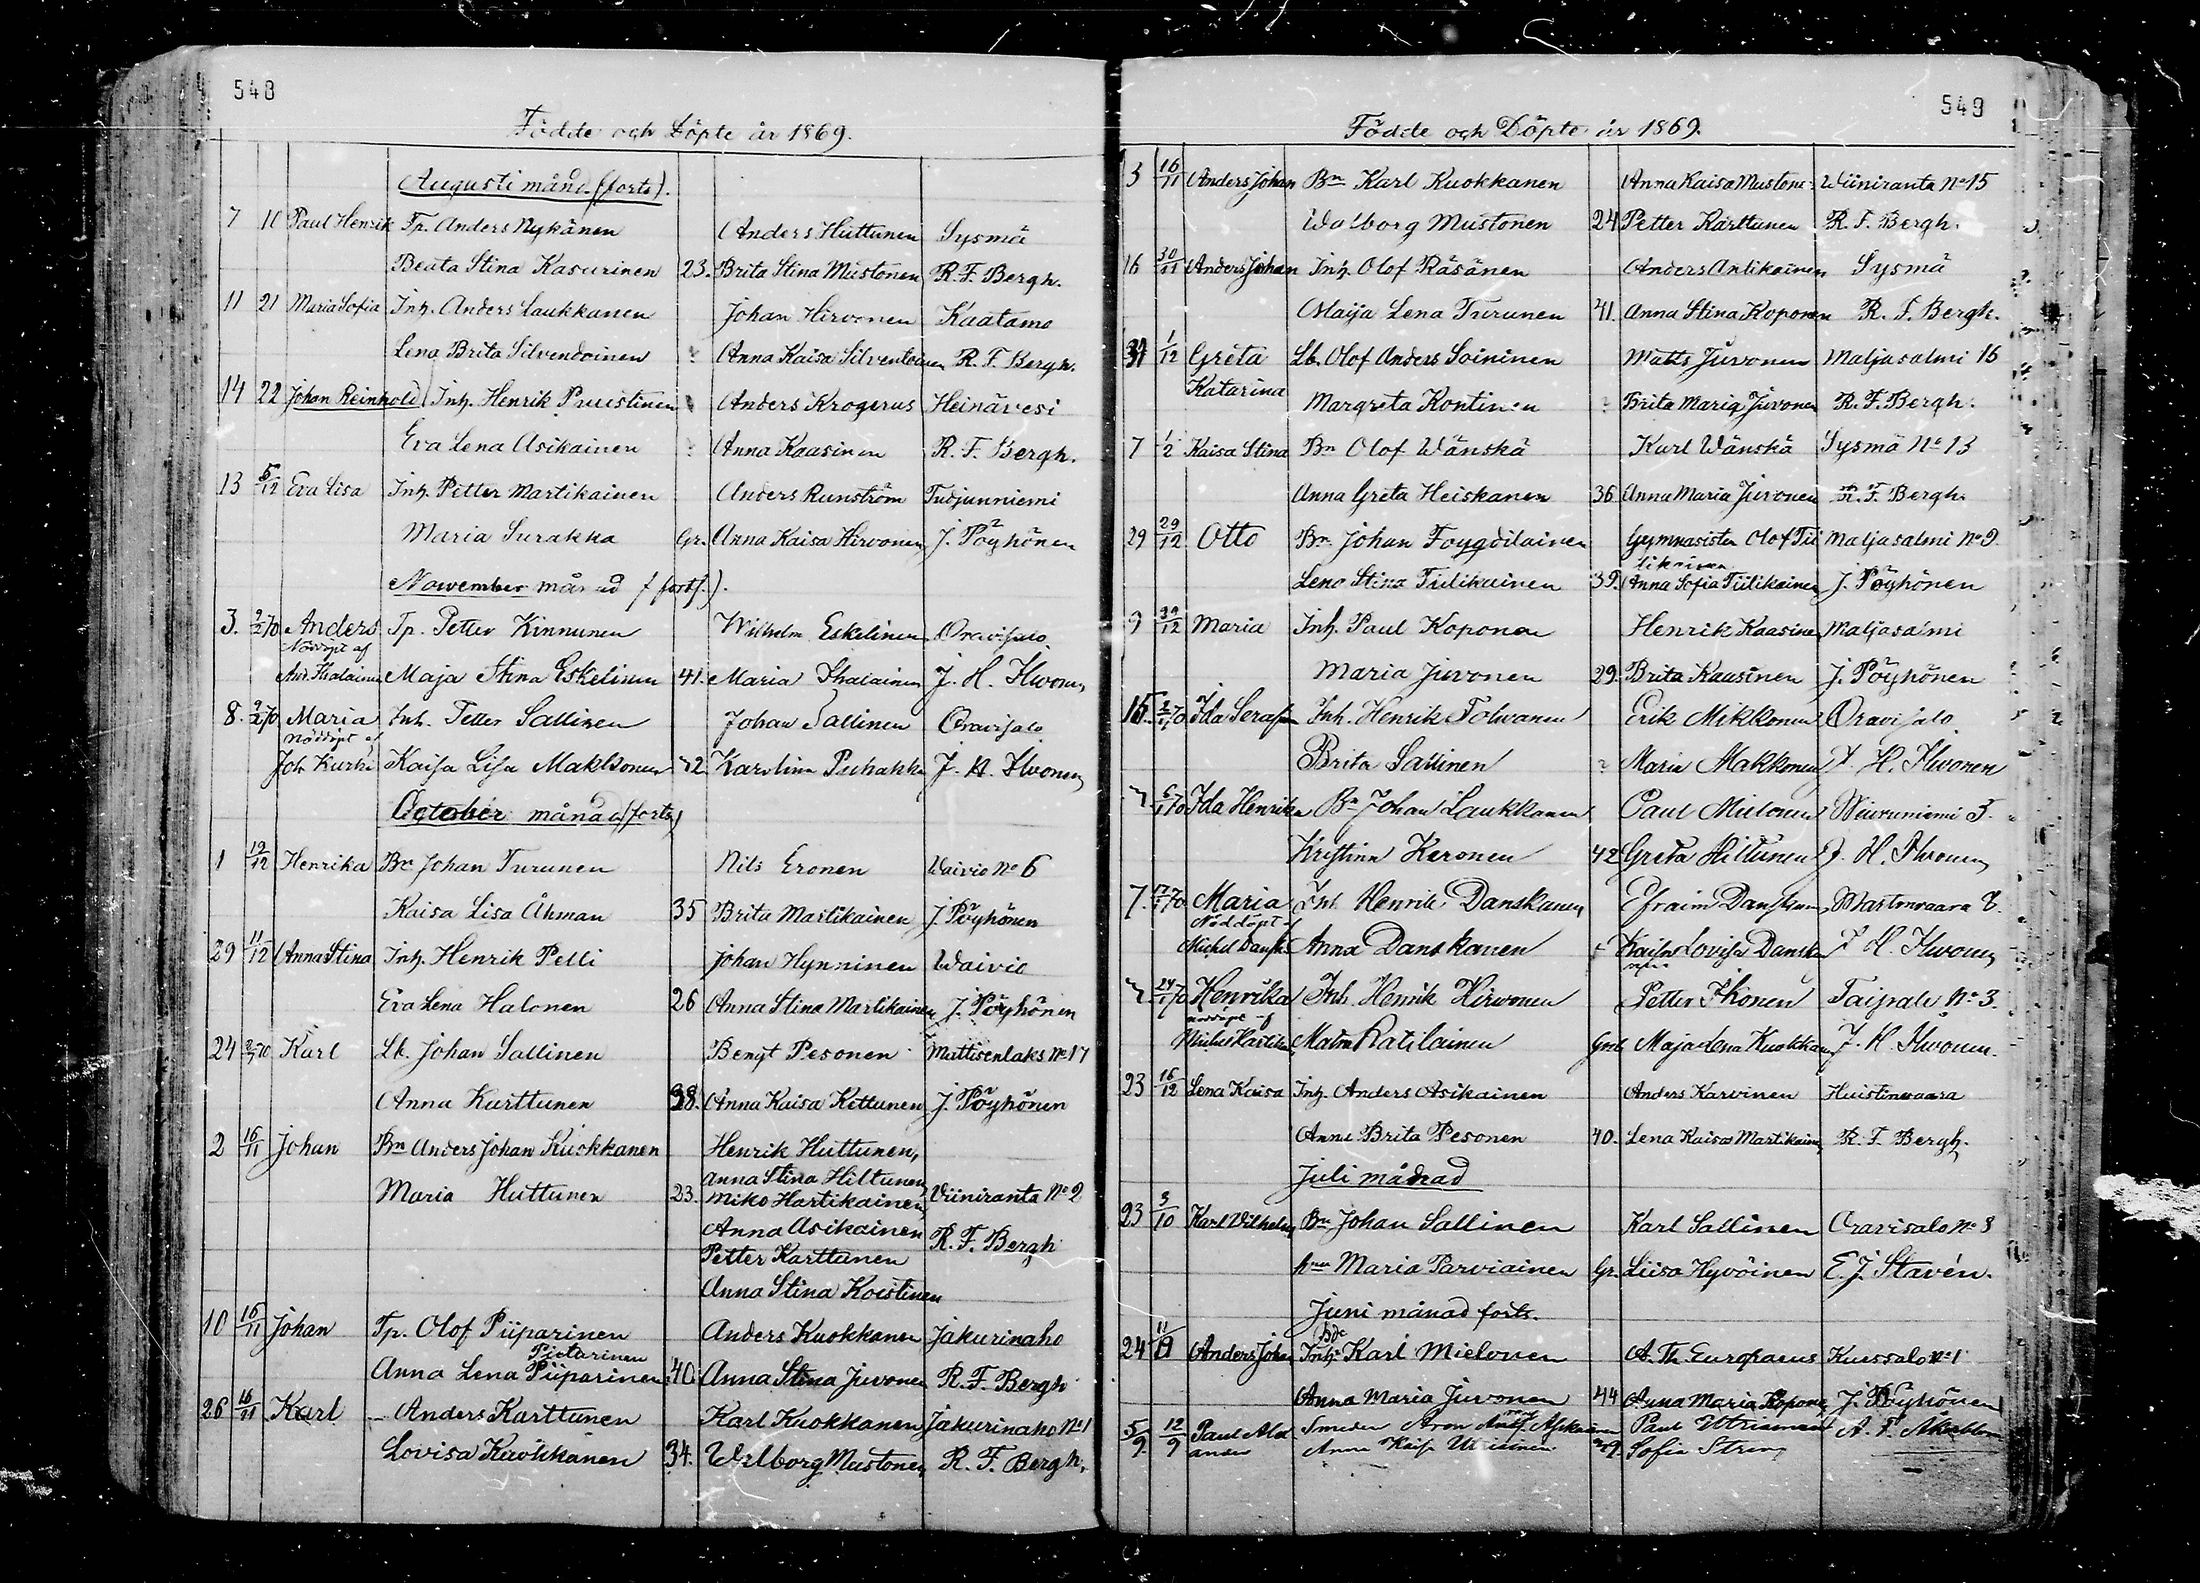 548
Födde och Döpte år 1869.
Augusti mån. (forts).
7 10 Paul Henrik Tp. Anders Nykänen Anders Huttunen Sysmä
Beata Stina Kasurinen 23. Brita Stina Mustonen R. F. Bergh.
11 21 Maria Sofia Inh. Anders Laukkanen Johan Hirvonen Kaatamo
Lena Brita Silvendoinen ? Anna Kaisa Silventoinen R. F. Bergh.
14 22 Johan Reinhold Inh. Henrik Puustinen Anders Krogerus Heinävesi
Eva Lena Asikainen ? Anna Kaasinen R. F. Bergh.
13 5/12 Eva Lisa Inh. Petter Martikainen Anders Runström Tutjunniemi
Maria Surakka Gr. Anna Kaisa Hirvonen J. Pöyhönen
November månad (forts.).
3. 9/2 70 Anders Tp. Petter Kinnunen Wilhelm Eskelinen Oravisalo
Nöddöpt af
And. Ihalainen Maja Stina Eskelinen 41. Maria Ihalainen J. H. Ilwonen
8. 9/2 70 Maria Inh. Petter Sallinen Johan Sallinen Oravisalo
Nöddöpt af
Joh. Kurki Kaisa Lisa Makkonen 42. Karolina Puhakka J. H. Ilwonen
October månad (forts)
1 19/12 Henrika Bn Johan Turunen Nils Eronen Waivio No 6
Kaisa Lisa Åhman 35 Brita Martikainen J. Pöyhönen
29 11/12 Anna Stina Inh. Henrik Pelli Johan Hynninen Waivio
Eva Lena Halonen 26 Anna Stina Martikainen J. Pöyhönen
24 2/1 70 Karl Lb. Johan Sallinen Bengt Pesonen Mattisenlaks No 17
Anna Kurttunen 38. Anna Kaisa Kettunen J. Pöyhönen
2 16/11 Johan Bn Anders Johan Kuokkanen Henrik Huttunen,
Anna Stina Hiltunen
Maria Huttunen 23. Miko Hartikainen Viiniranta No 2
Anna Asikainen R. F. Bergh
Petter Karttunen
Anna Stina Koistinen
10 16/11 Johan Tp. Olof Piiparinen Anders Kuokkanen Jakurinaho
Pietarinen
Anna Lena Piiparinen 40. Anna Stina Juvonen R. F. Bergh
26 16/11 Karl – Anders Karttunen Karl Kuokkanen Jakurinaho No 1
Lovisa Kuokkanen 34. Walborg Mustonen R. F. Bergh.
549
Födde och Döpte år 1869.
3 16/11 Anders Johan Bn Karl Kuokkanen Anna Kaisa Mustonen Wiiniranta No 15
Walborg Mustonen 24 Petter Karttunen R. F. Bergh.
16 30/11 Anders Johan Inh. Olof Räsänen Anders Antikainen Sysmä
Maija Lena Turunen 41. Anna Stina Koponen R. F. Bergh.
31 1/12 Greta Lb. Olof Anders Soininen Matts Juvonen Maljasalmi 16
Katarina Margreta Kontinen ? Brita Maria Juvonen R. F. Bergh.
7 1/2 Kaisa Stina Bn Olof Wänskä Karl Wänskä Sysmä No 13
Anna Greta Heiskanen 36. Anna Maria Juvonen R. F. Bergh.
29 29/12 Otto Bn Johan Foygdilainen Gymnasisten Olof Tii Maljasalmi No 9.
likainen
Lena Stina Tiilikainen 39. Anna Sofia Tiilikainen J. Pöyhönen
9 29/12 Maria Inh. Paul Koponen Henrik Kaasinen Maljasalmi
Maria Juvonen 29. Brita Kaasinen J. Pöyhönen
15. 70 Ida Serafi Inh. Henrik Tolwanen Erik Mikkonen Oravisalo
Brita Sallinen ? Maria Makkonen J. H. Ilwonen
7 6/1 70 Ida Henrika Bn Johan Laukkanen Paul Mielonen
Kristina Karonen 42 Greta Hiltunen J. H. Ilwonen
7. 17/1 70 Maria Inh. Henrik Danskanen Efraim Danskanen Martonvaara 8.
Nöddöpt
Michel Dansk Anna Danskanen Kaisa Lovisa Danska J. H. Ilwonen
nen
7 24/1 70 Henrika Inh. Henrik Hirwonen Petter Ikonen Taipale No 3.
nöddöpt af
Malm Ratilainen Maja Lena Kuokkanen J. H. Ilwonen.
23 16/12 Lena Kaisa Inh. Anders Asikainen Anders Karvinen Huistinvaara
Anna Brita Pesonen 40. Lena Kaisa Martikainen R. F. Bergh.
Juli månad
23 3/10 Karl Vilhelm Bn Johan Sallinen Karl Sallinen Oravisalo No 8
hun Maria Parviainen Gr. Liisa Hyvöinen E. J. Stavén.
Juni månad forts.
24 11/9 Anders Johan Inh. Karl Mielonen A. Th. Europaeus Kuussalo No 1
Anna Maria Juvonen 44 Anna Maria Kopone J. Pöyhönen
5/9. 12/9 Paul Alex Smeden Aron Asikainen Paul Utriainen
ander Anna Kaisa Utriainen Sofia Streng